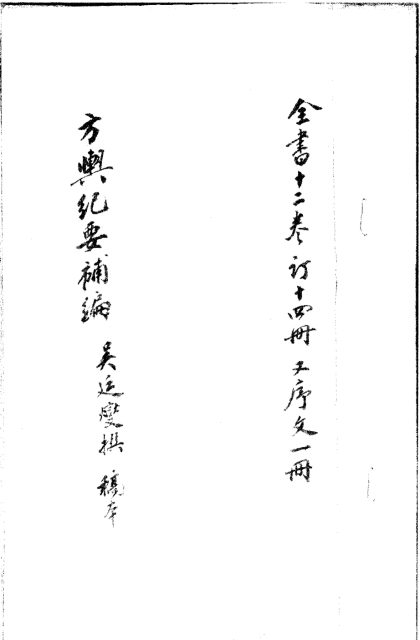 全書十二卷 訂十四冊 又序文一冊
方輿紀要補編 吳廷燮撰 稿本